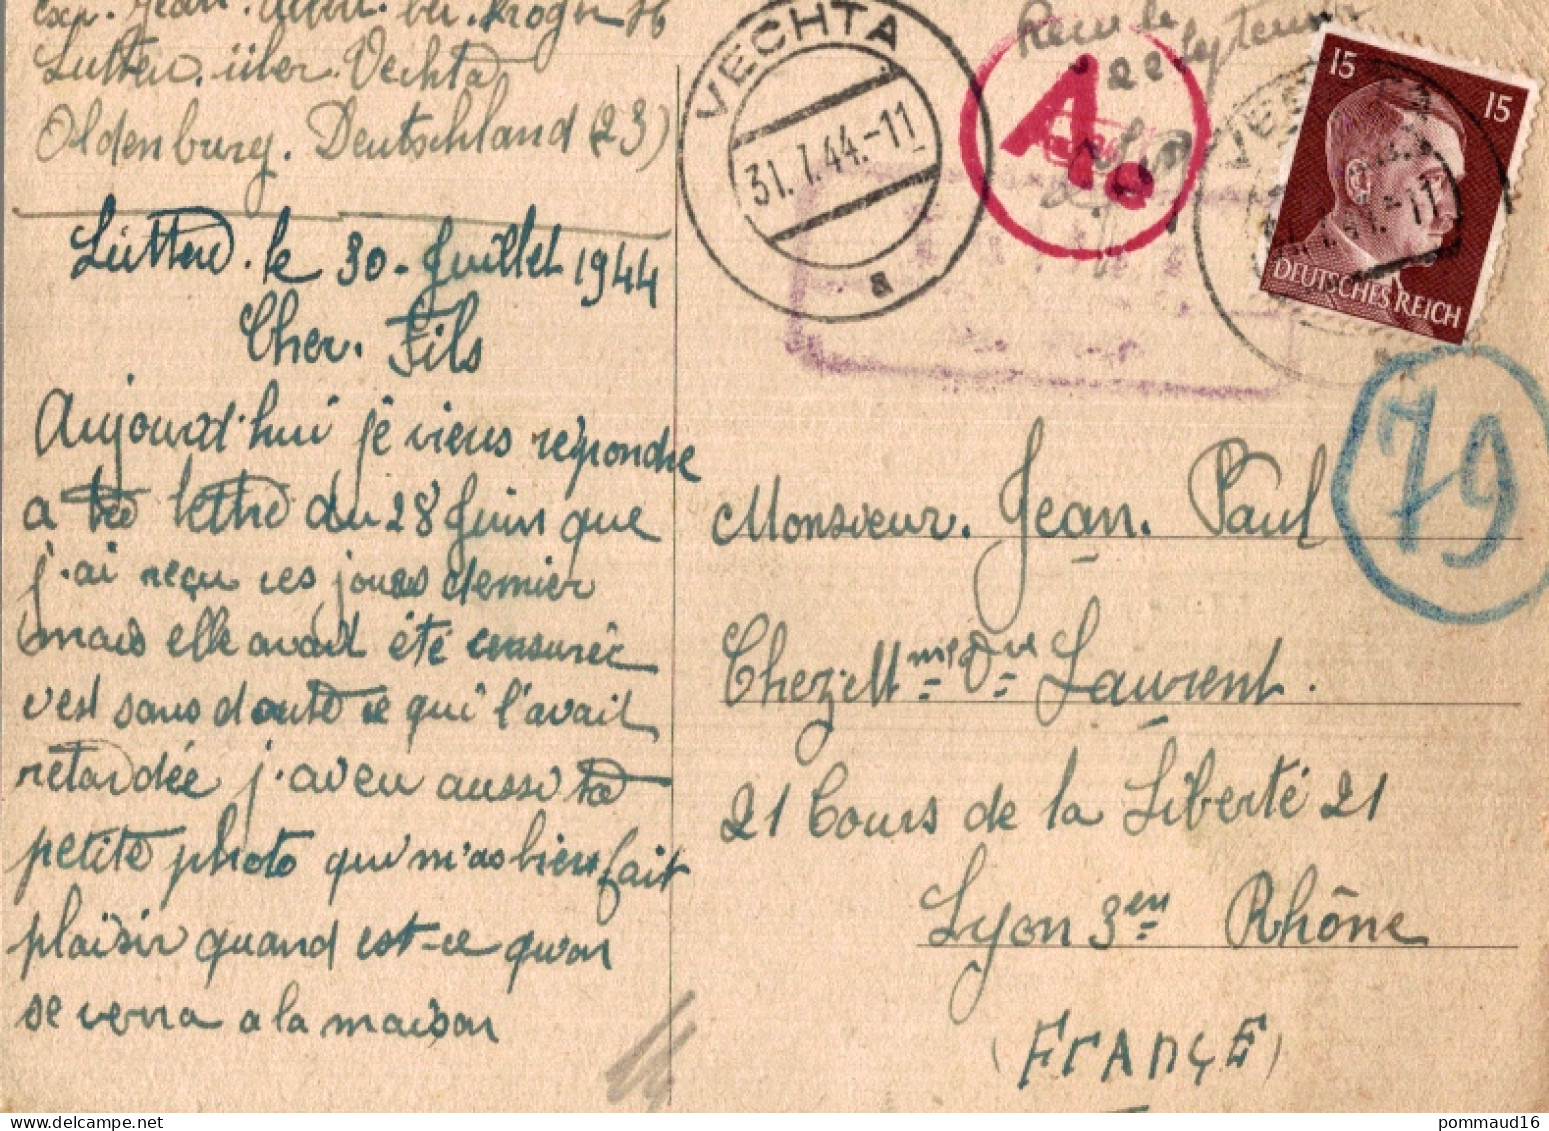 Exp. Jean. Albert. bei. Kroger H
Lutten. über. Vechta
Oldenburg. Deutschland (23)
Lutten. le 30. Juillet 1944
Cher. Fils
Aujourd'hui je viens repondre
a ta lettre du 28 Juin que
j.ai reçu ces jours dernier
mais elle avait été censurée
c'est sans doute ce qui l'avait
retardée j.aveu aussi ta
petite photo qui m'as bien fait
plaisir quand est-ce qu'on
se verra a la maison
VECHTA
31.7.44.-11
a
A.
Reçu le
15
15
DEUTSCHES REICH
79
Monsieur. Jean. Paul
Chez. Mme Vve Laurent.
21 Cours de la Liberté 21
Lyon 3em Rhône
(FrAnçE)
pommaud16